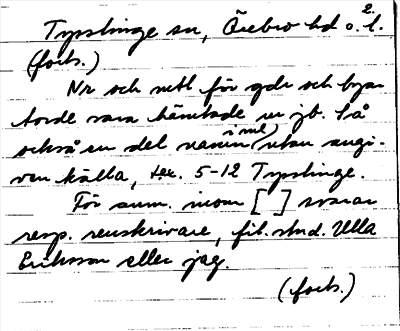 2.
Tysslinge sn, Örebro hd o. l.
(forts.)
Nr och mtl för gdr och byar
torde vara hämtade ur jb. Så
också en del namn i ml utan angi-
ven källa, t.ex. 5-12 Tysslinge.
För anm. inom [ ] svarar
resp. renskrivare, fil. stud. Ulla
Eriksson eller jag.
(forts.)